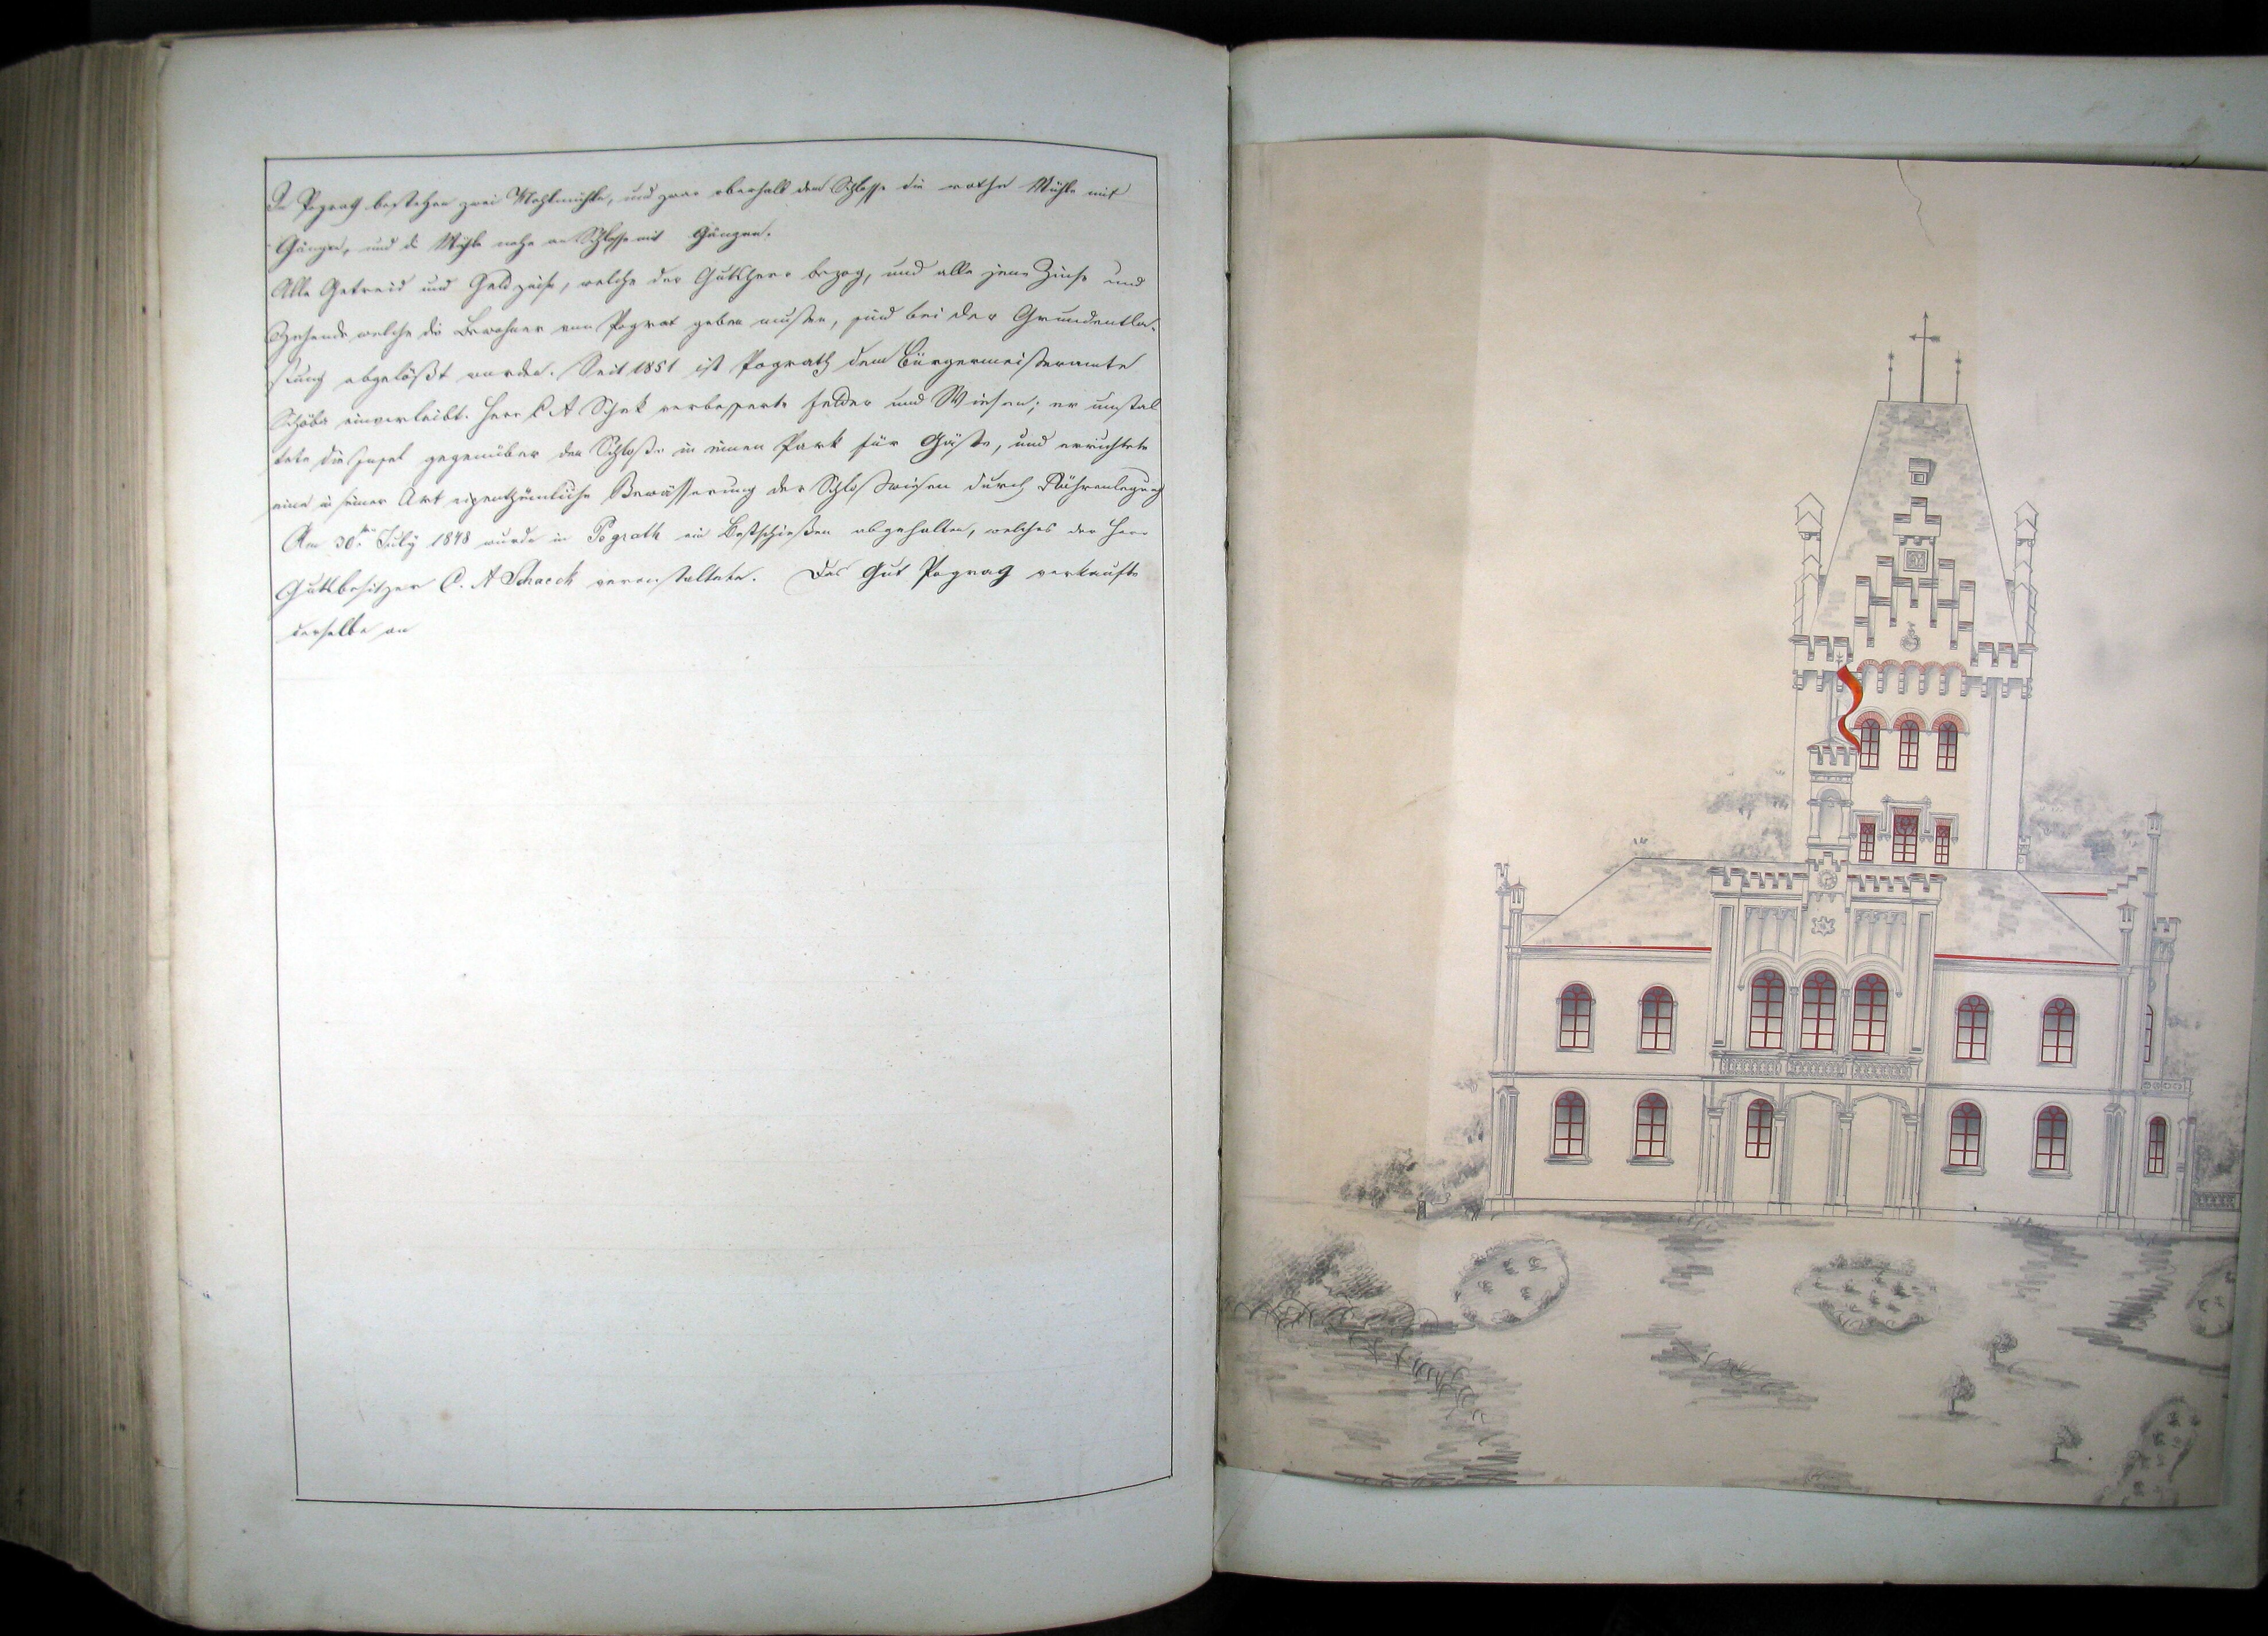 In Pograth bestehen zwei Mahlmühlen, und zwar oberhalb dem Schlosse die rothe Mühle mit
Gängen, und die Mühle nahe am Schlosse mit Gängen.
Alle Getreid und Geldzinse, welche der Gutsherr bezog, und alle jene Zinse und
Zehende welche die Bewohner von Pograt geben mußten, sind bei der Grundentla-
stung abgelößt worden. Seit 1851 ist Pograth dem Bürgermeisteramte
Schöba einverleibt. Herr C. A Schek verbesserte Felder und Wiesen; er umstal
tete die Insel gegenüber dem Schloße in einen Park für Gäste, und errichtete
eine in seiner Art eigenthümliche Bewässerung der Schloßwiesen durch Röhrenlegung
Am 30ten July 1848 wurde in Pograth ein Bestschießen abgehalten, welches der Herr
Gutsbesitzer C. A Schaeck veranstaltete. Das Gut Pograth verkaufte
derselbe an